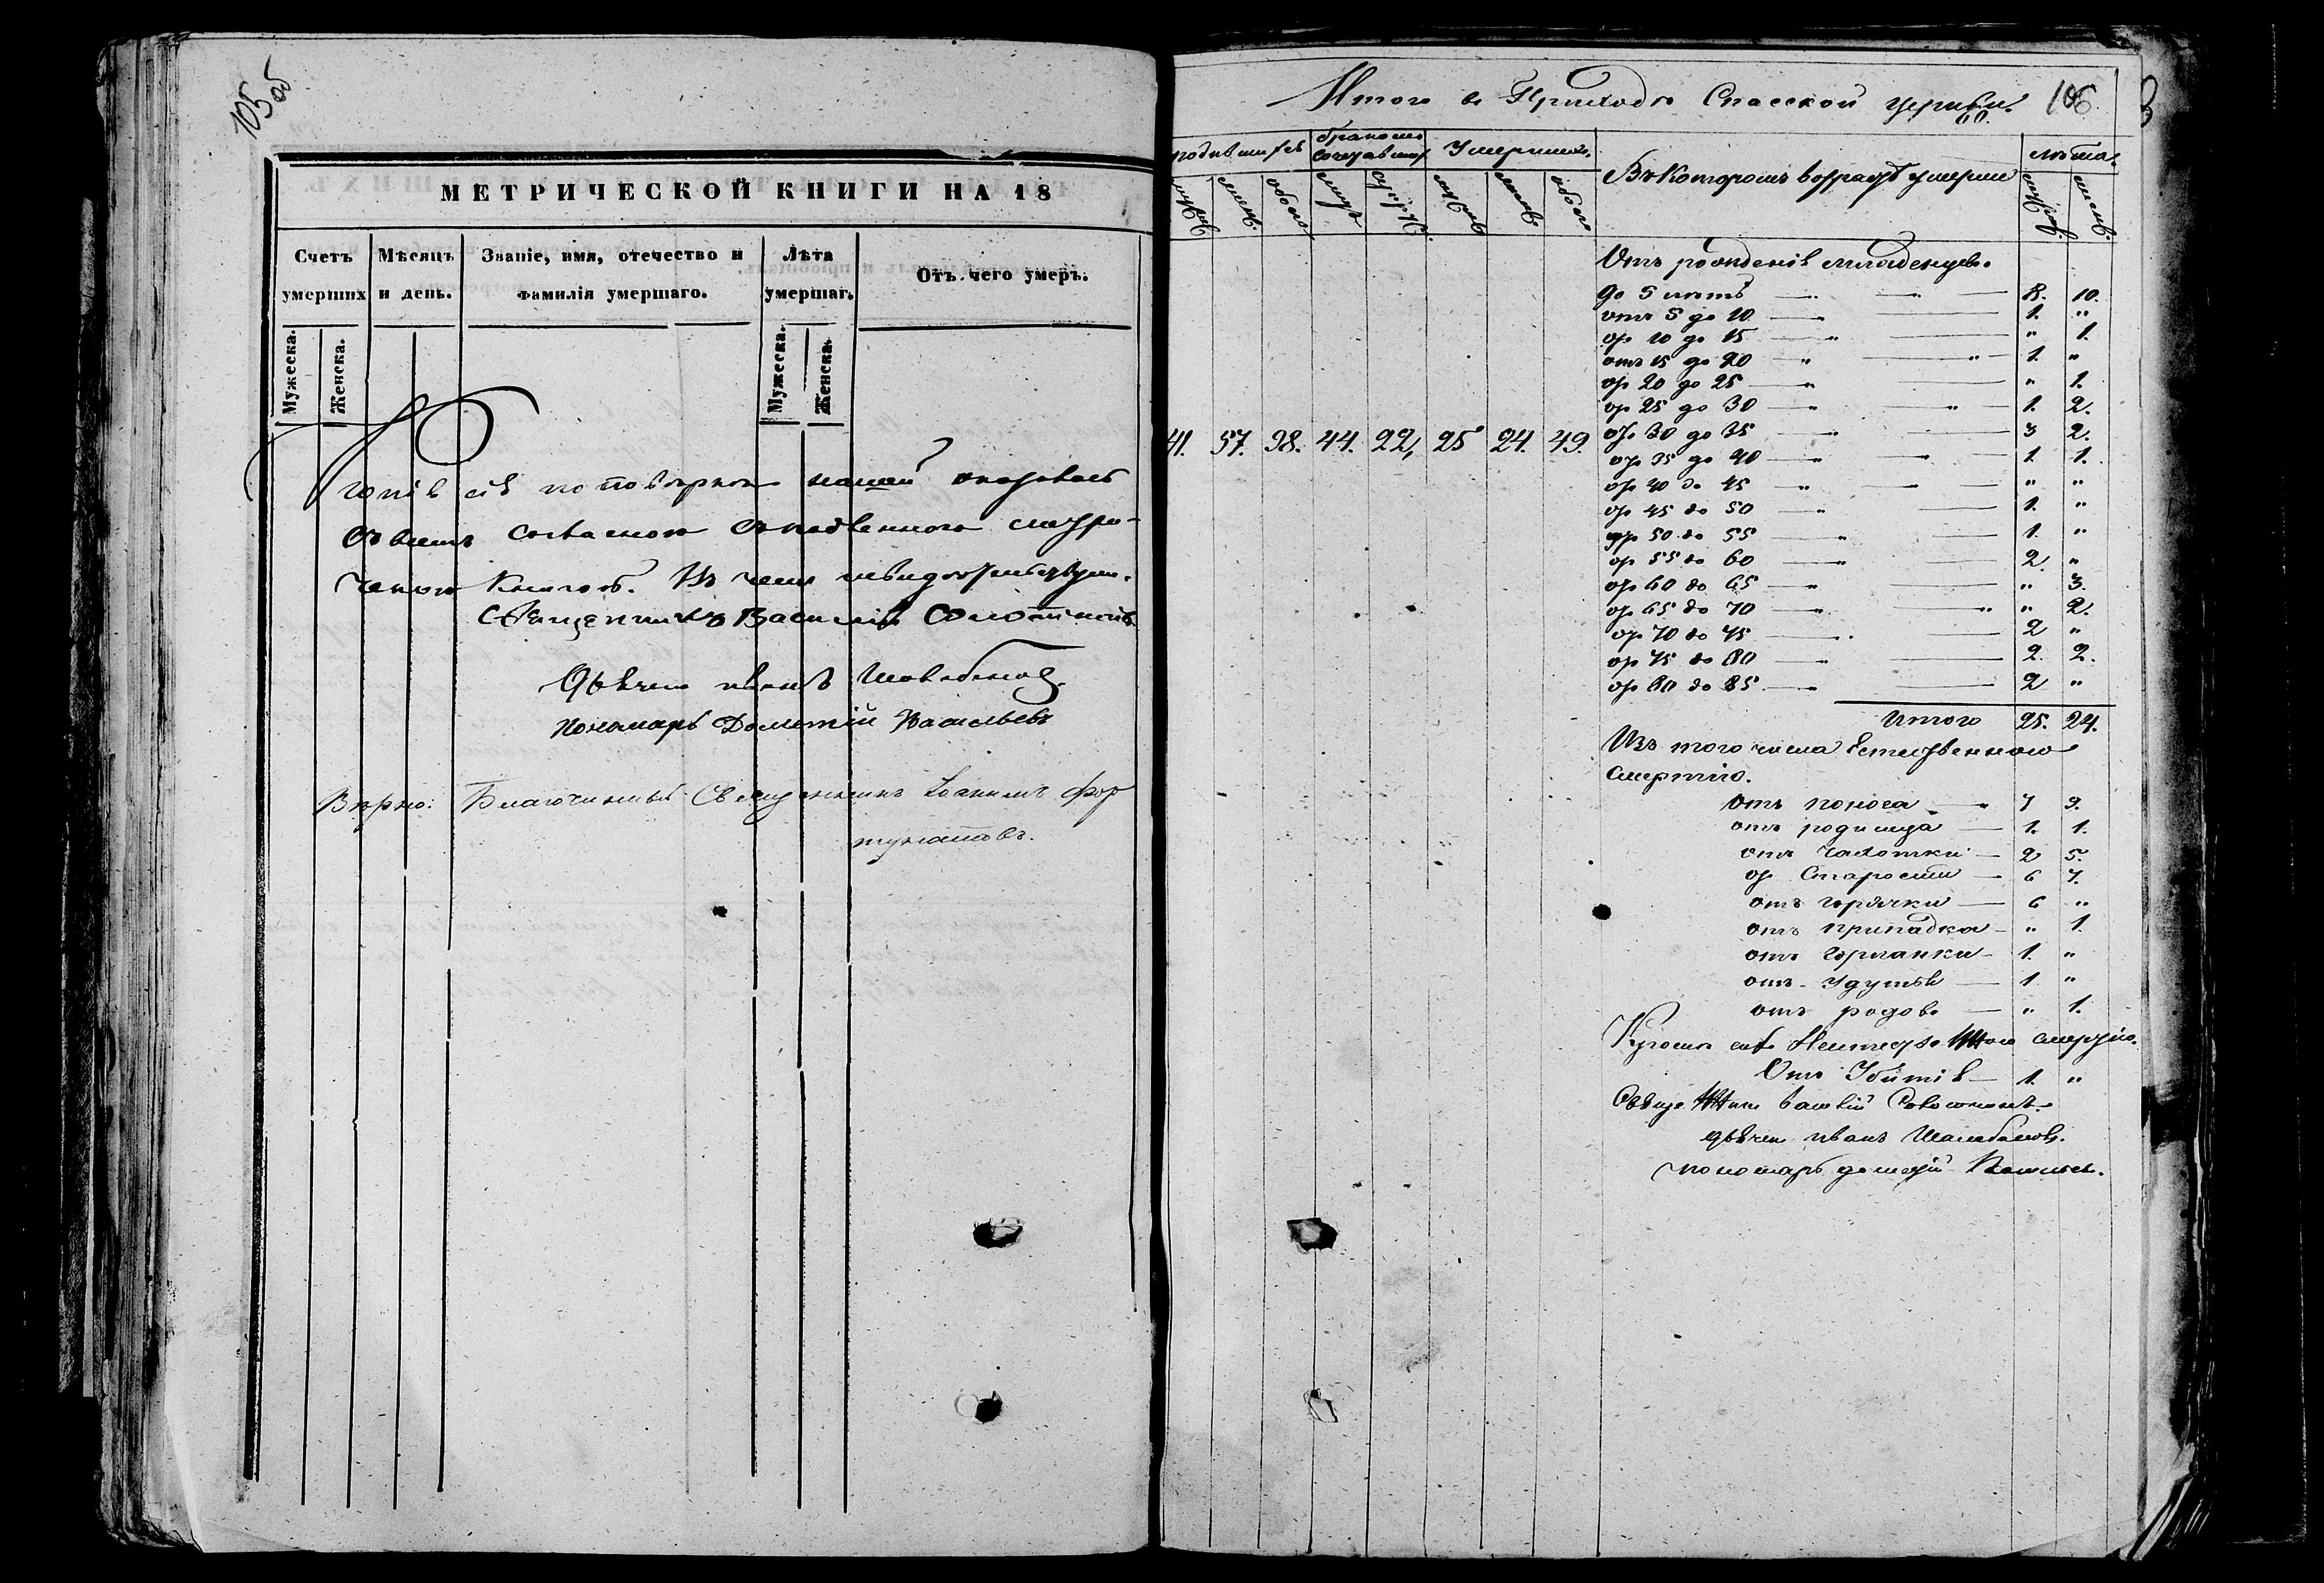 105 об
МЕТРИЧЕСКОЙ КНИГИ НА 18
Счетъ умершихъ
Мѣсяцъ и день.
Званіе, имя, отечество и фамилія умершаго.
Лѣта умершаго
Отъ чего умеръ.
Мужеска. Женска. Мужеска. Женска.
Копія сія по повѣркѣ нашей оказалась
во всемъ согласною съ подленною метри-
ческою книгою. Въ чемъ и свидѣтельствуемъ.
Священникъ Василій
Дьячекъ Иванъ
Пономарь Дометій Васильевъ
Вѣрно: Благочинный Священникъ Іоакимъ Фор
тунатовъ.
Итого въ Приходѣ Спасской церкви. 106
родившихся бракомъ сочетавшихся Умершихъ. Въ которомъ возрастѣ умерли лѣта.
41. 57. 98. 44. 22, 25 24. 49.
Отъ рожденія младенцевъ.
до 5 лѣтъ 8. 10.
отъ 5 до 10 1. "
от 10 до 15 " 1.
отъ 15 до 20 1. "
от 20 до 25 " 1.
от 25 до 30 1. 2.
от 30 до 35 3 2.
от 35 до 40 1. 1.
от 40 до 45 " "
от 45 до 50 1. "
от 50 до 55 1. "
от 55 до 60 2. "
от 60 до 65 " 3.
от 65 до 70 " 2.
от 70 до 75 2 "
от 75 до 80 2. 2.
от 80 до 85 2 "
Итого 25. 24.
Изъ того числа Естественною
смертію.
Отъ поноса 7 9.
отъ родимца 1. 1.
отъ чахотки 2 5.
от Старости 6 7.
отъ горячки 6 "
отъ припадка " 1.
отъ горланки 1. "
отъ удушья 1 "
отъ родовъ " 1.
Кромѣ сихъ Неестественною смертію.
Отъ Убитія 1. "
Священникъ Василій
дьячекъ Иванъ
пономарь Дометій Васильевъ.